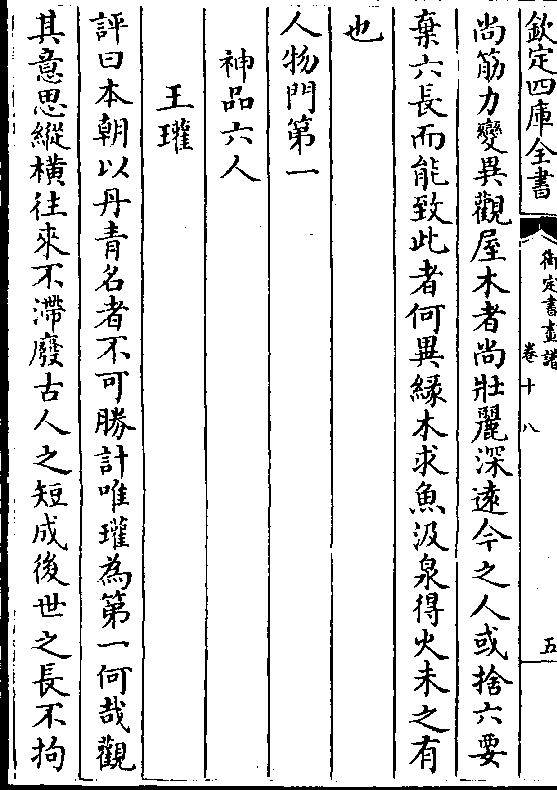 欽定四庫全書
御定書畫譜
卷十八
五
尚筋力變異觀屋木者尚壯麗深遠今之人或捨六要
棄六長而能致此者何異緣木求魚汲泉得火未之有
也
人物門第一
神品六人
王瓘
評曰本朝以丹青名者不可勝計唯瓘為第一何哉觀
其意思縱橫往來不滯廢古人之短成後世之長不拘